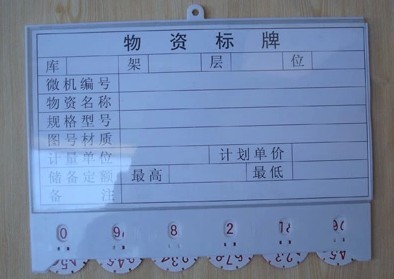 物资标牌
库 架 层 位
微机编号
物资名称
规格型号
图号材质
计量单位 计划单价
储备定额 最高 最低
备注
0 9 8 2